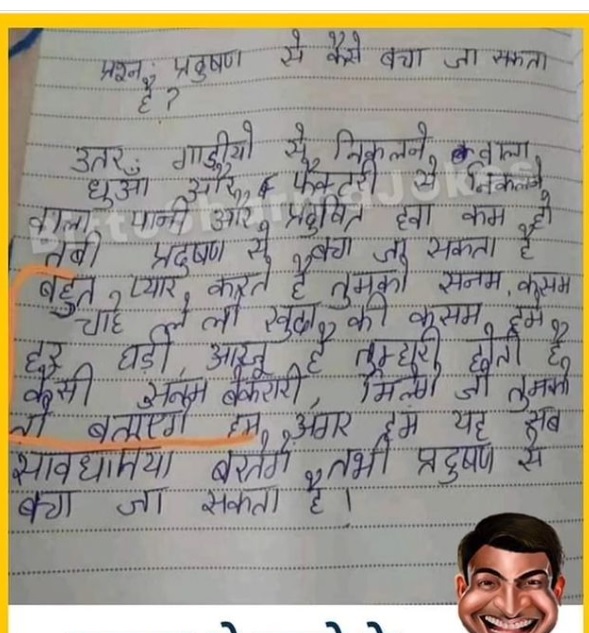 प्रश्न: प्रदुषण से कैसे बचा जा सकता
है ?
उतर: गाड़ीयो से निकलने वाला
धुआँ और फैक्टरी से निकलने
वाला पानी और प्रदुषित हवा कम हो
तबी प्रदुषण से बचा जा सकता है
बहुत प्यार करते है तुमको सनम, कसम
चाहे ले लो खुदा की कसम, हमे
हर घड़ी आरजू है तुम्हारी, होती है
कैसी सनम बेकरारी, मिलोगे जो तुमको
तो बताएगे हम, अगर हम यह सब
सावधानिया बरतेगे, तभी प्रदुषण से
बचा जा सकता है ।